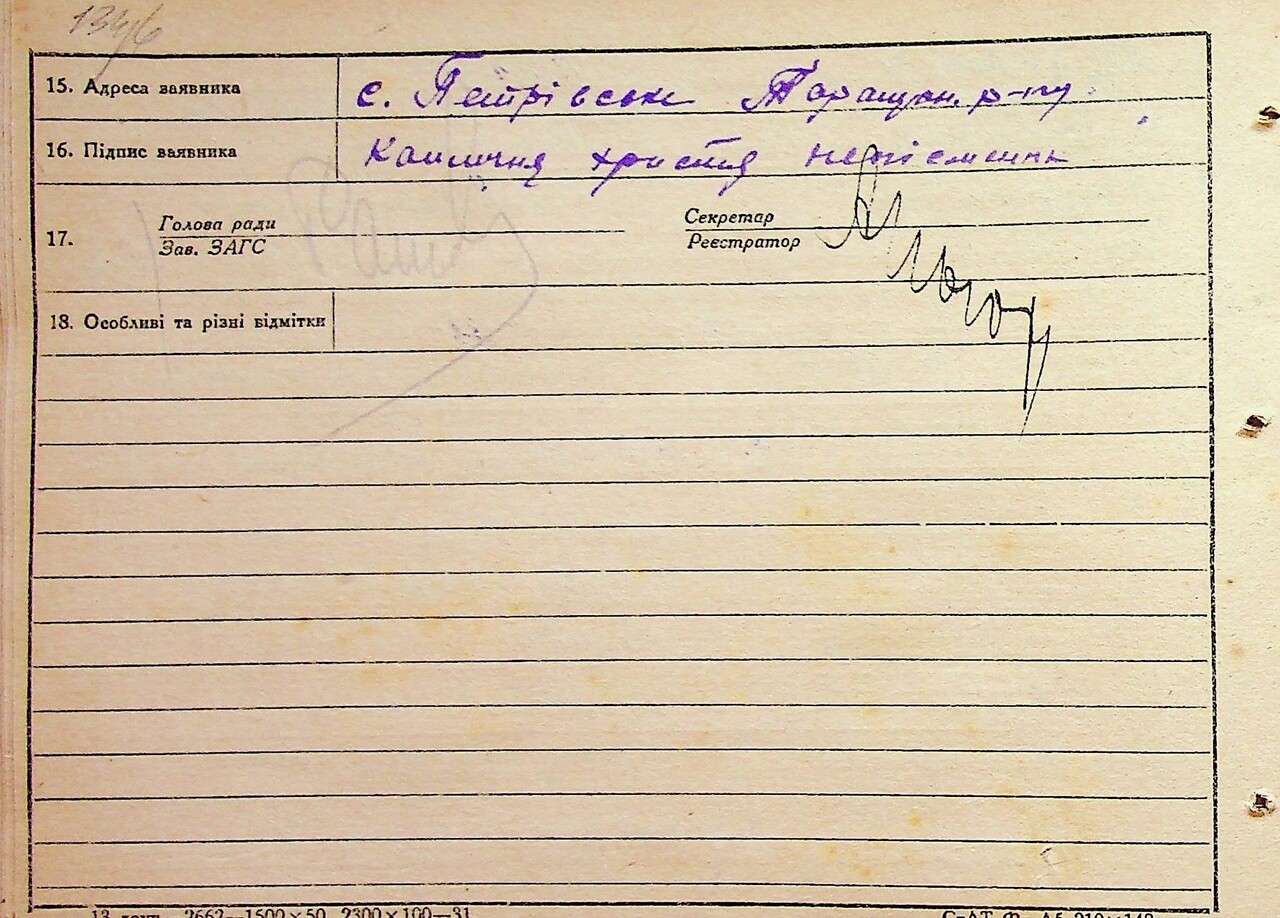 134/6
15. Адреса заявника с. Петрівське Таращан. р-ну
16. Підпис заявника христя неписьменна
17. Голова ради Секретар
Зав. ЗАГС Реєстратор
18. Особливі та різні відмітки
2662—1500×50 2300×100—31